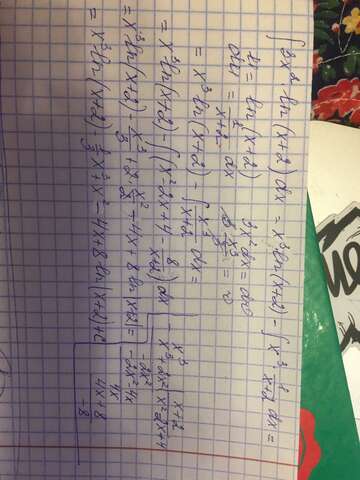 ∫ 3x² ln(x+2) dx = x³ ln(x+2) - ∫ x³ 1/(x+2) dx =
u = ln(x+2) 3x² dx = dv
du = 1/(x+2) dx 3 x³/3 = v
= x³ ln(x+2) - ∫ x³/(x+2) dx =
= x³ ln(x+2) - ∫ (x² - 2x + 4 - 8/(x+2)) dx
= x³ ln(x+2) - x³/3 + 2 x²/2 - 4x + 8 ln|x+2| =
= x³ ln(x+2) - 1/3 x³ + x² - 4x + 8 ln|x+2| + C
x³ | x+2
x³ + 2x² | x² - 2x + 4
-2x²
-2x² - 4x
4x
4x + 8
-8